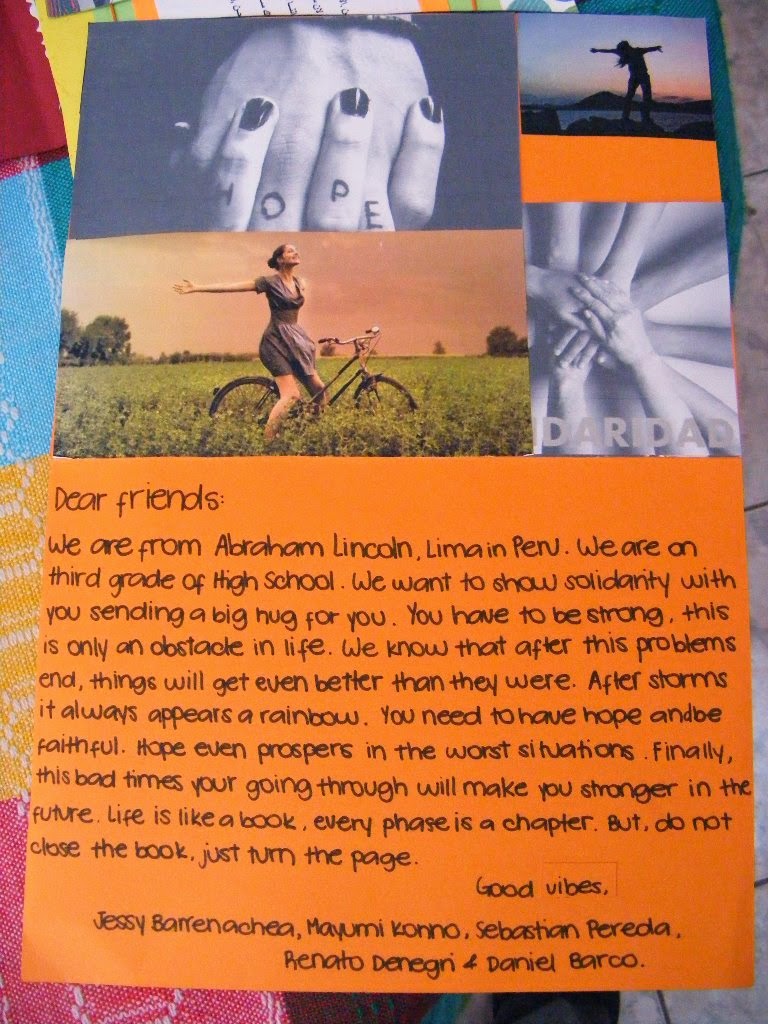 HOPE
IDARIDAD
Dear friends:
We are from Abraham Lincoln, Lima in Peru. We are on
third grade of High School. We want to show solidarity with
you sending a big hug for you. You have to be strong, this
is only an obstacle in life. We know that after this problems
end, things will get even better than they were. After storms
it always appears a rainbow. You need to have hope and be
faithful. Hope even prospers in the worst situations. Finally,
this bad times your going through will make you stronger in the
future. Life is like a book, every phase is a chapter. But, do not
close the book, just turn the page.
Good vibes,
Jessy Barrenachea, Mayumi Konno, Sebastian Pereda,
Renato Denegri & Daniel Barco.